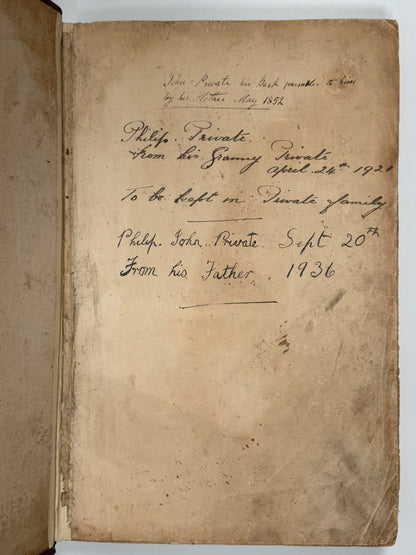 John Private his Book presented to him
by his Mother May 1852
Philip. Private.
from his Granny Private
April 24th 1921
To be kept in Private family
Philip. John. Private. Sept 20th
From his Father. 1936